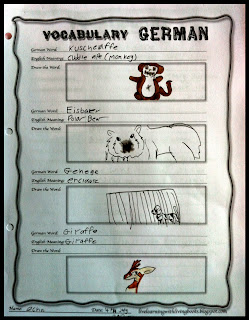 VOCABULARY GERMAN
German Word: Kuscheaffe
English Meaning: Cuddle (monkey)
Draw the Word:
German Word: Eisbater
English Meaning: Polar Bear
Draw the Word:
German Word: Gehege
English Meaning: enclosure
Draw the Word:
German Word: Giraffe
English Meaning: Giraffe
Draw the Word:
Name: Date: